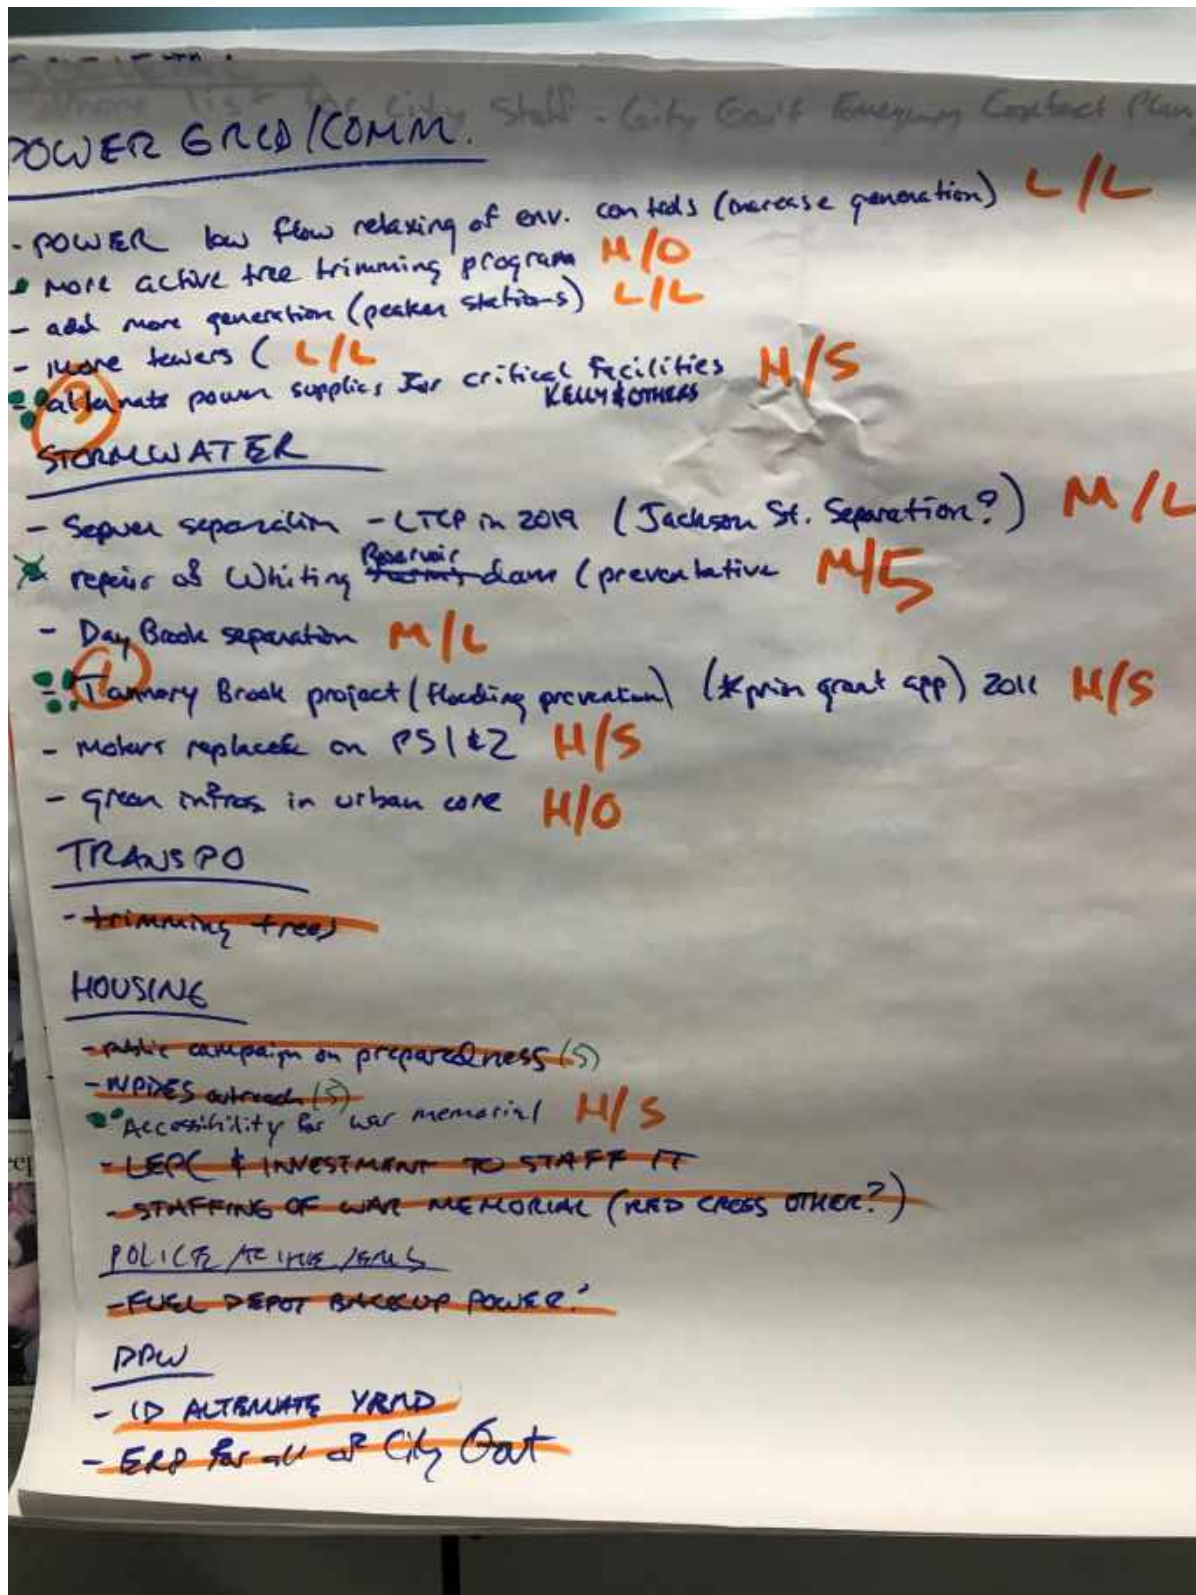 SOCIETAL:
Phone list for City Staff - City Gov't Emergency Contact Plan
POWER GRID/COMM.
- POWER low flow relaxing of env. controls (increase generation) L/L
More active tree trimming program H/O
- add more generation (peaker stations) L/L
- more towers ( L/L
- alternate power supplies for critical facilities H/S
KELLY & OTHERS
3
STORMWATER
- Sewer separation - LTCP in 2019 (Jackson St. Separation?) M/L
Reservoir
repair of Whiting dam (preventative M/S
- Day Brook separation M/L
1
- Tannery Brook project (flooding prevention) (*prior grant app) H/S
- Motors on PS1&2 H/S
- green infras in urban core H/O
TRANSPO
- trimming trees
HOUSING
- public campaign on preparedness (S)
- NPDES outreach (S)
Accessibility for war memorial H/S
- LEPC & INVESTMENT TO STAFF IT
- STAFFING OF WAR MEMORIAL (RED CROSS OTHER?)
POLICE / FIRE / EMS
- FUEL DEPOT BACKUP POWER
DPW
- ID ALTERNATE YARD
- ERP for all of City Gov't